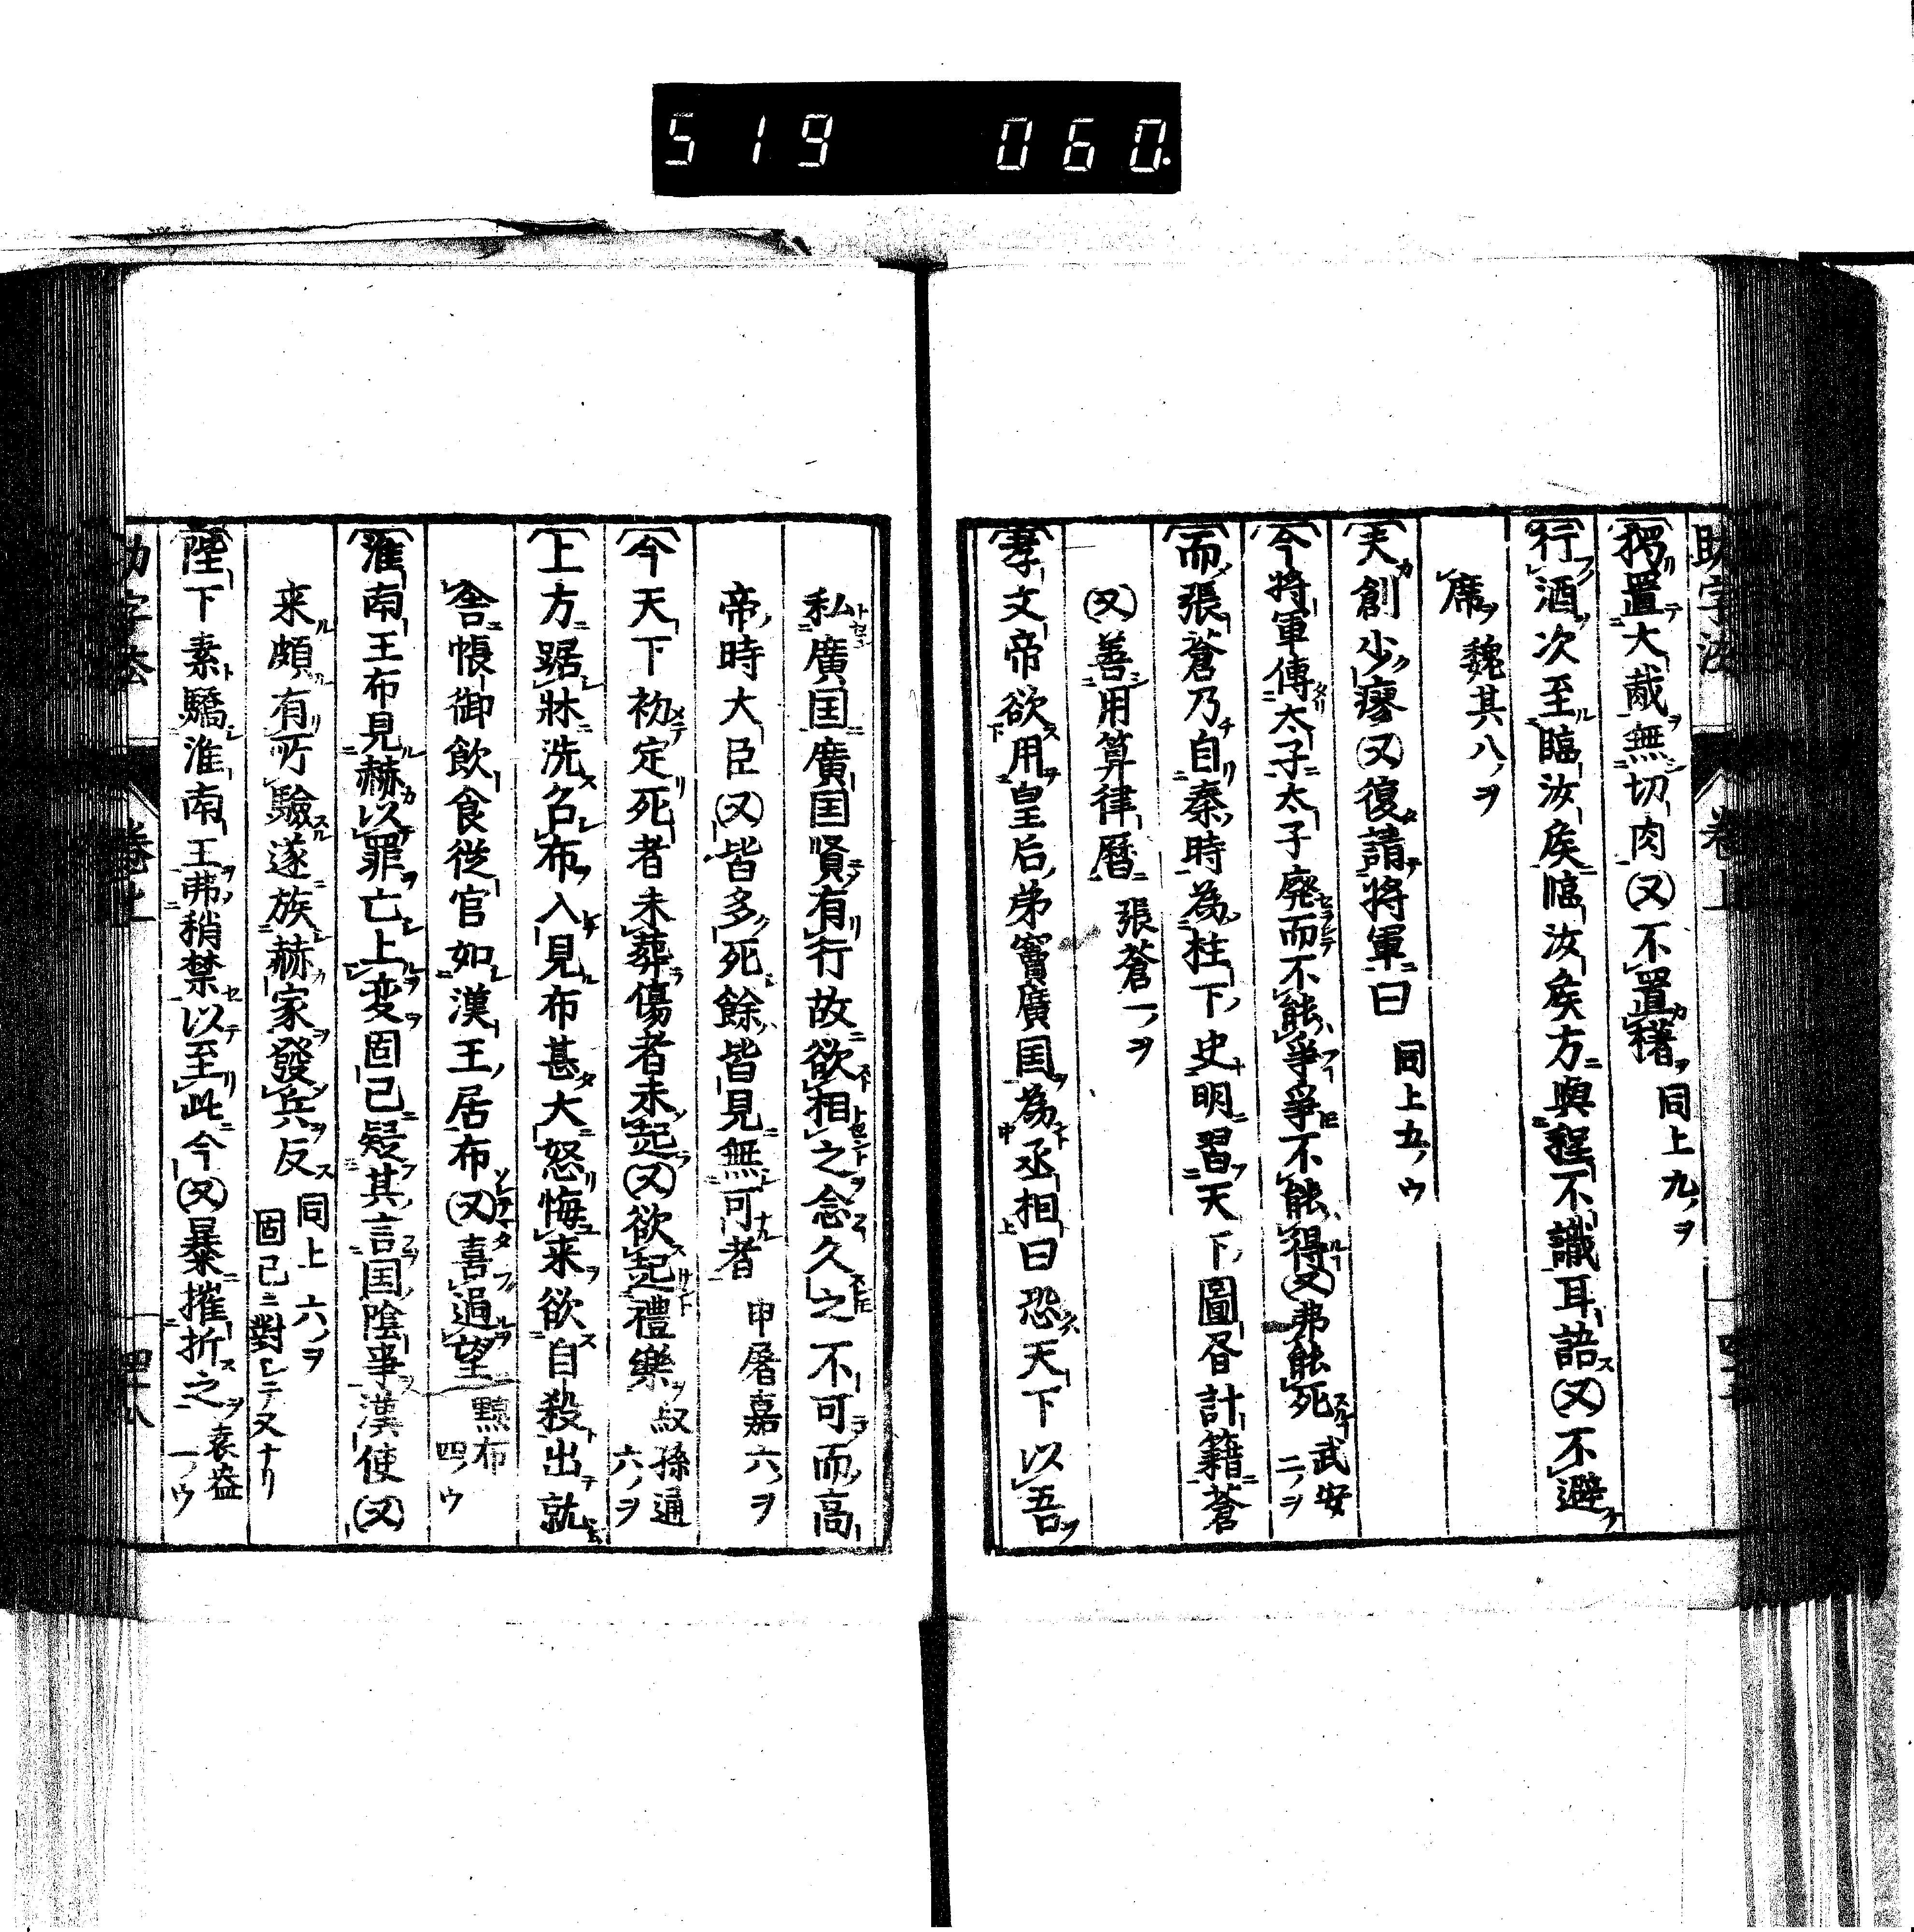 519 060.
助字法
卷上
獨置大胾無切肉又不置櫡 同上九ノヲ
行酒次至臨汝矦臨汝矦方與程不識耳語又不避
席 魏其八ノヲ
夫創少瘳又復請將軍曰 同上五ノウ
今將軍傳太子太子廢而不能爭爭不能得又弗能死 武安二ノヲ
而張蒼乃自秦時為柱下史明習天下圖昏計籍蒼
又善用算律曆 張蒼一ノヲ
孝文帝欲用皇后弟竇廣囯為丞相曰恐天下以吾
私廣囯廣囯賢有行故欲相之念久之不可而高
帝時大臣又皆多死餘皆見無可者 申屠嘉六ノヲ
今天下初定死者未葬傷者未起又欲起禮樂 叔孫通六ノヲ
上方踞牀洗召布入見布甚大怒悔来欲自殺出就
舍帳御飲食從官如漢王居布又喜過望 黥布四ノウ
淮南王布見赫以罪亡上変固已疑其言囯陰事漢使又
来頗有所驗遂族赫家發兵反 同上六ノヲ 固已ニ對シテ又ナリ
陛下素驕淮南王弗稍禁以至此今又暴摧折之 袁盎一ノウ
卷上
四十八